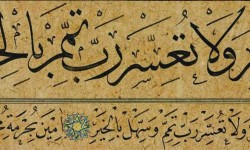 وَلَا تُعَسِّرْ رَبِّ تَمِّمْ
وَلَا تُعَسِّرْ رَبِّ تَمِّمْ وَسَهِّلْ بِالْخَيْرِ